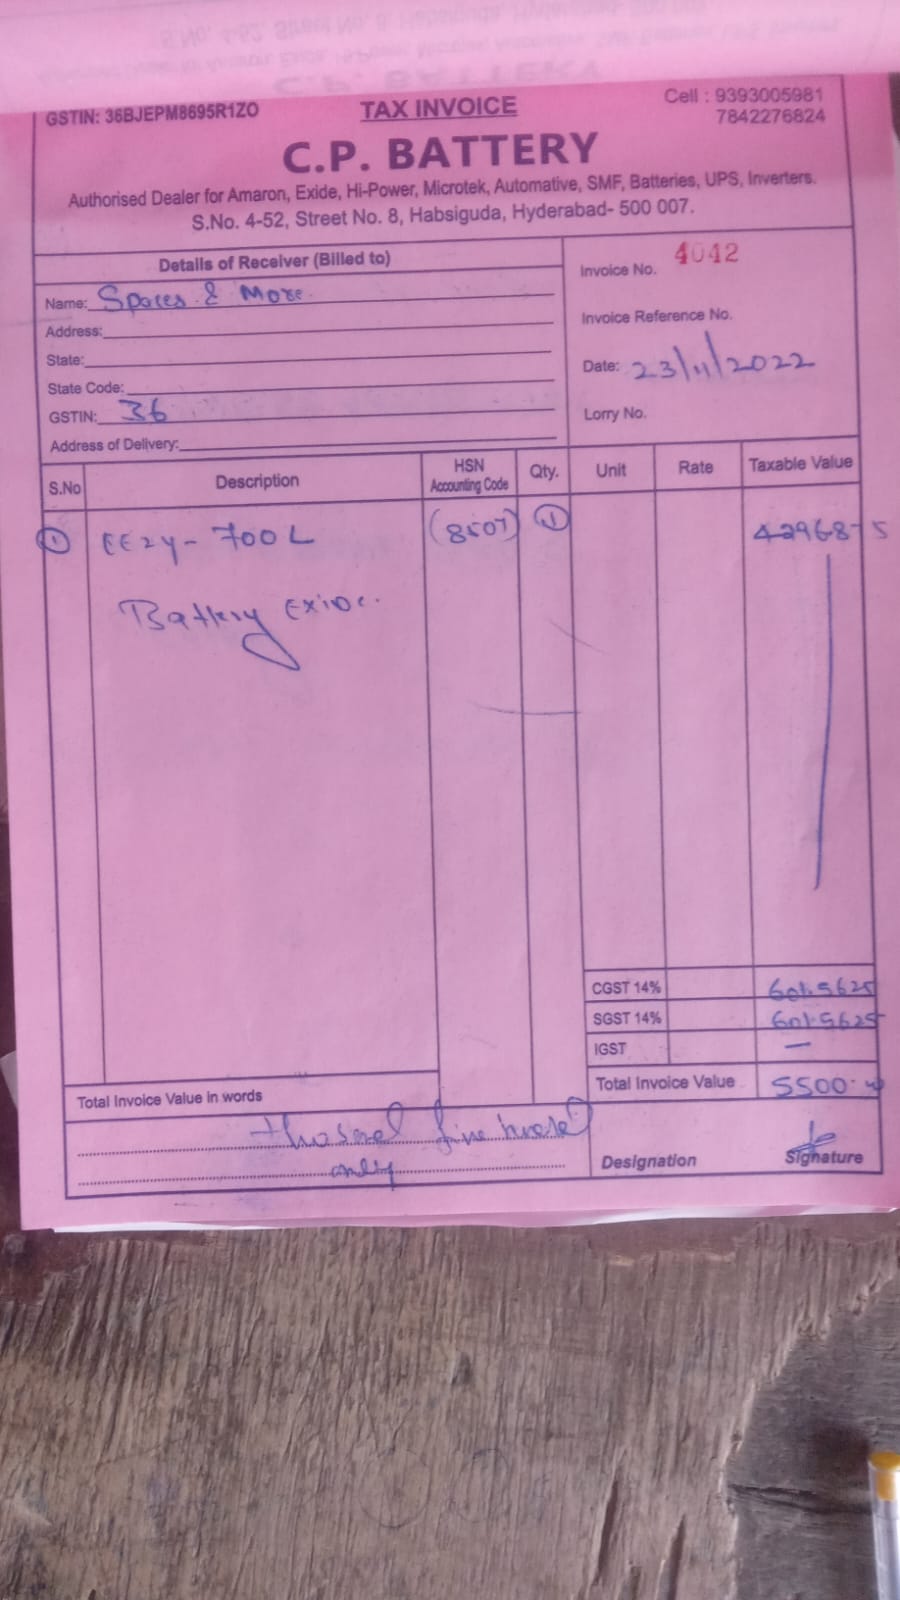 GSTIN: 36BJEPM8695R1ZO
TAX INVOICE
Cell : 9393005981
7842276824
C.P. BATTERY
Authorised Dealer for Amaron, Exide, Hi-Power, Microtek, Automative, SMF, Batteries, UPS, Inverters.
S.No. 4-52, Street No. 8, Habsiguda, Hyderabad- 500 007.
Details of Receiver (Billed to)
Name: Spaces & More.
Address:
State:
State Code:
GSTIN: 36
Address of Delivery:
Invoice No. 4042
Invoice Reference No.
Date: 23/11/2022
Lorry No.
S.No Description HSN Accounting Code Qty. Unit Rate Taxable Value
1 EEZY-700L (8507) 1 4296875
Battery Exide.
CGST 14% 601.5625
SGST 14% 601.5625
IGST —
Total Invoice Value 5500.
Total Invoice Value in words
five
only
Designation
Signature